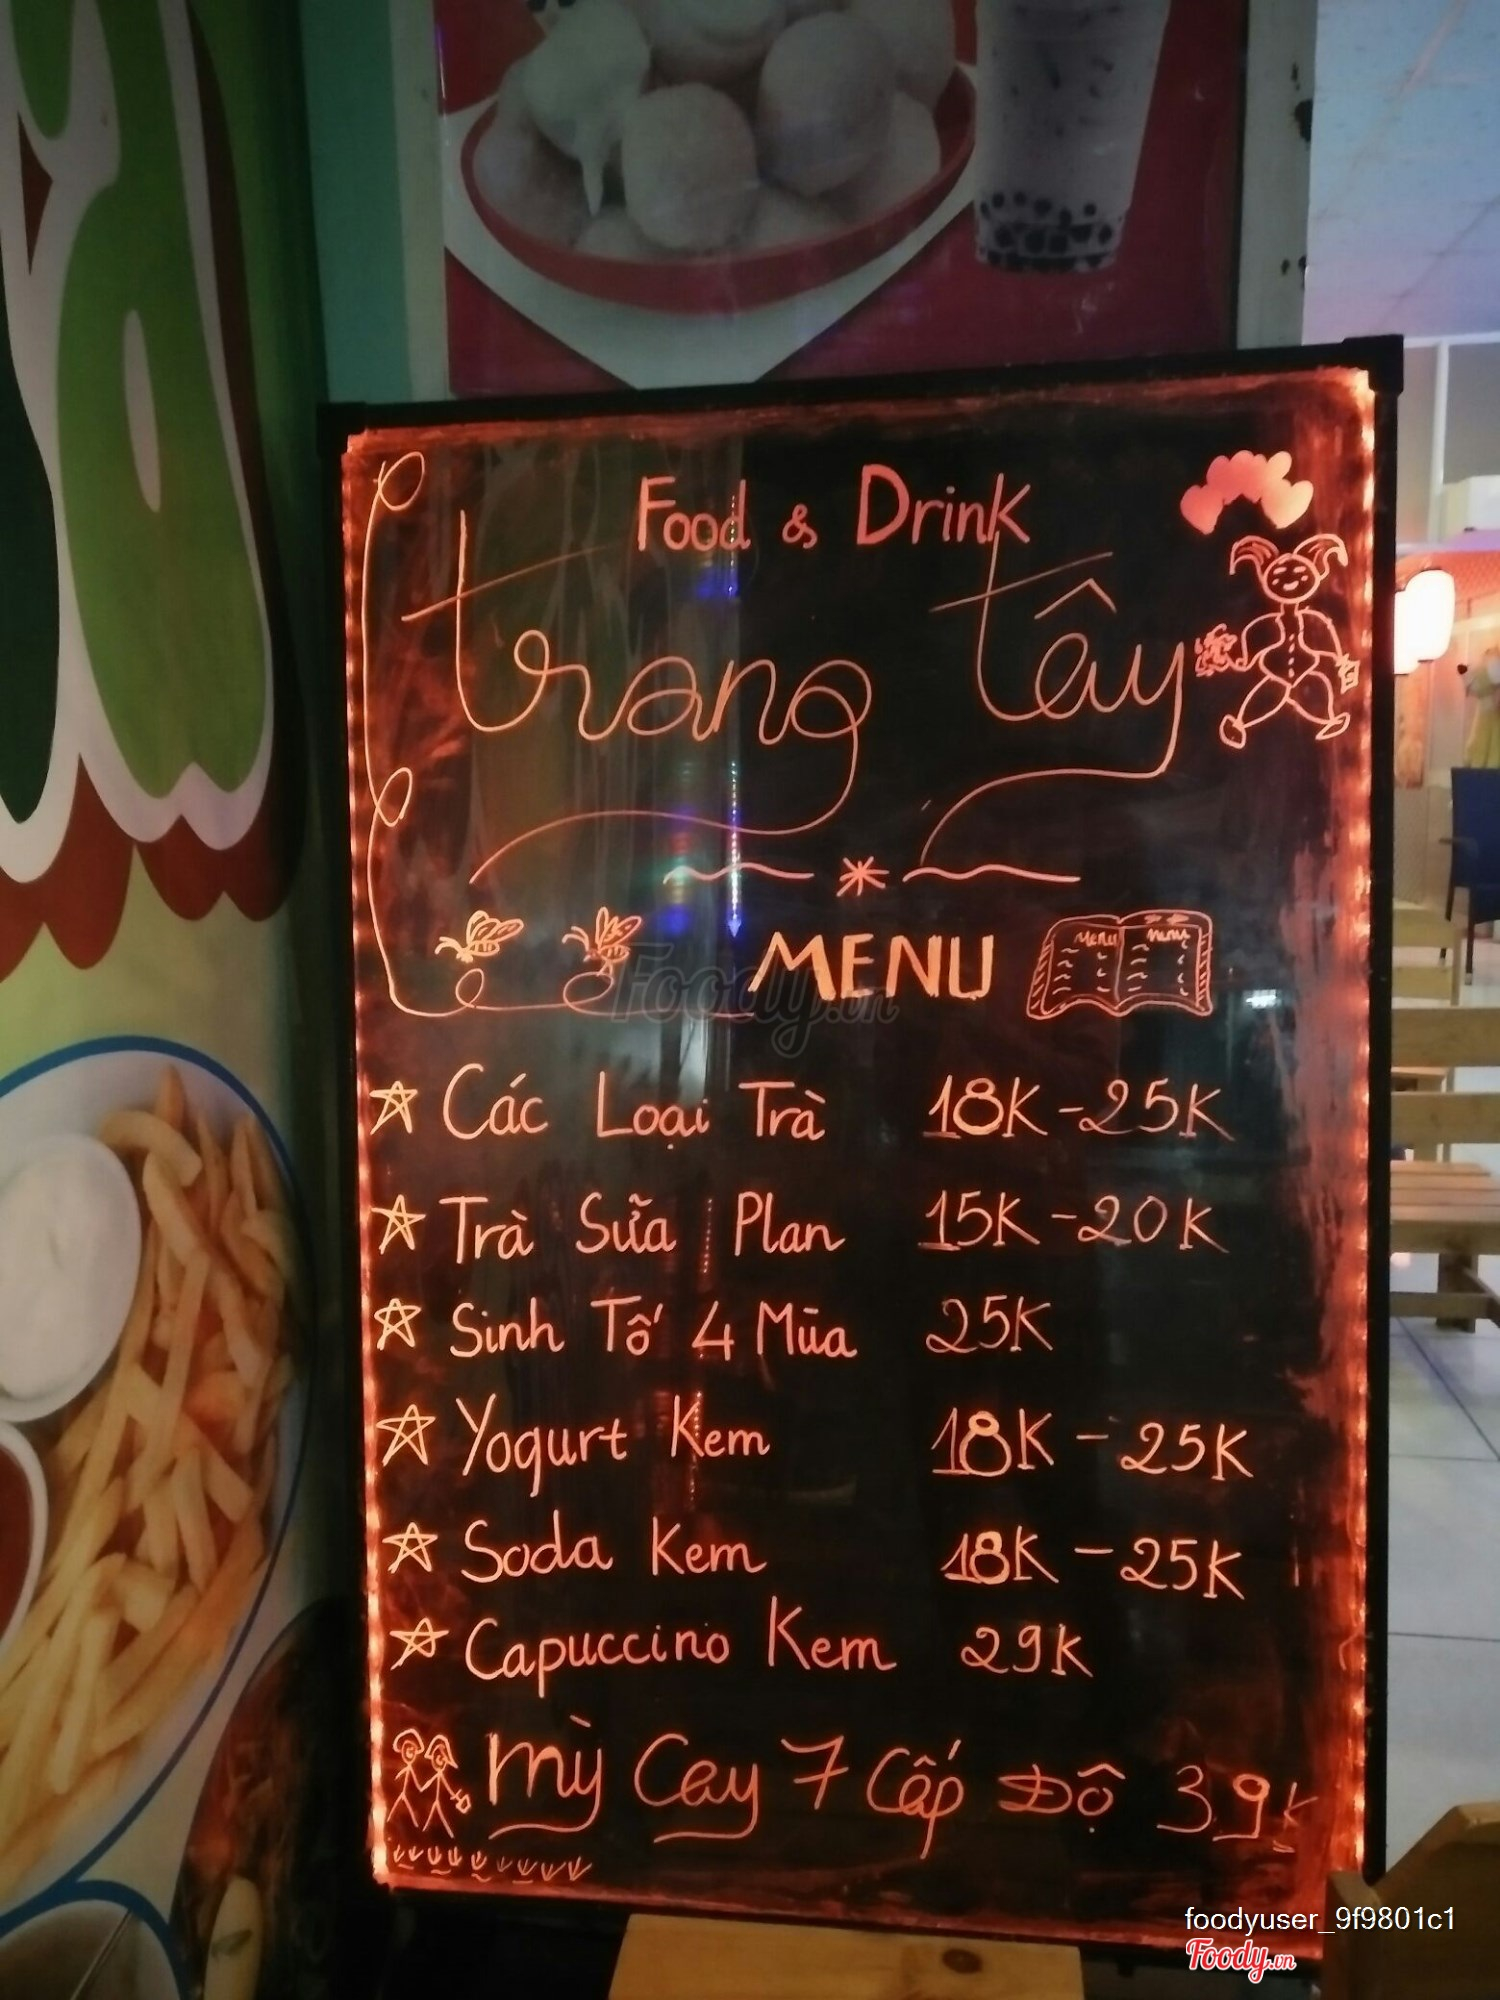 Food & Drink
trang tây
MENU
Menu Menu
Các Loại Trà 18K - 25K
Trà Sữa Plan 15K - 20K
Sinh Tố 4 Mùa 25K
Yogurt Kem 18K - 25K
Soda Kem 18K - 25K
Capuccino Kem 29K
Mỳ Cay 7 Cấp Độ 39K
Foody.vn
foodyuser_9f9801c1
Foody.vn